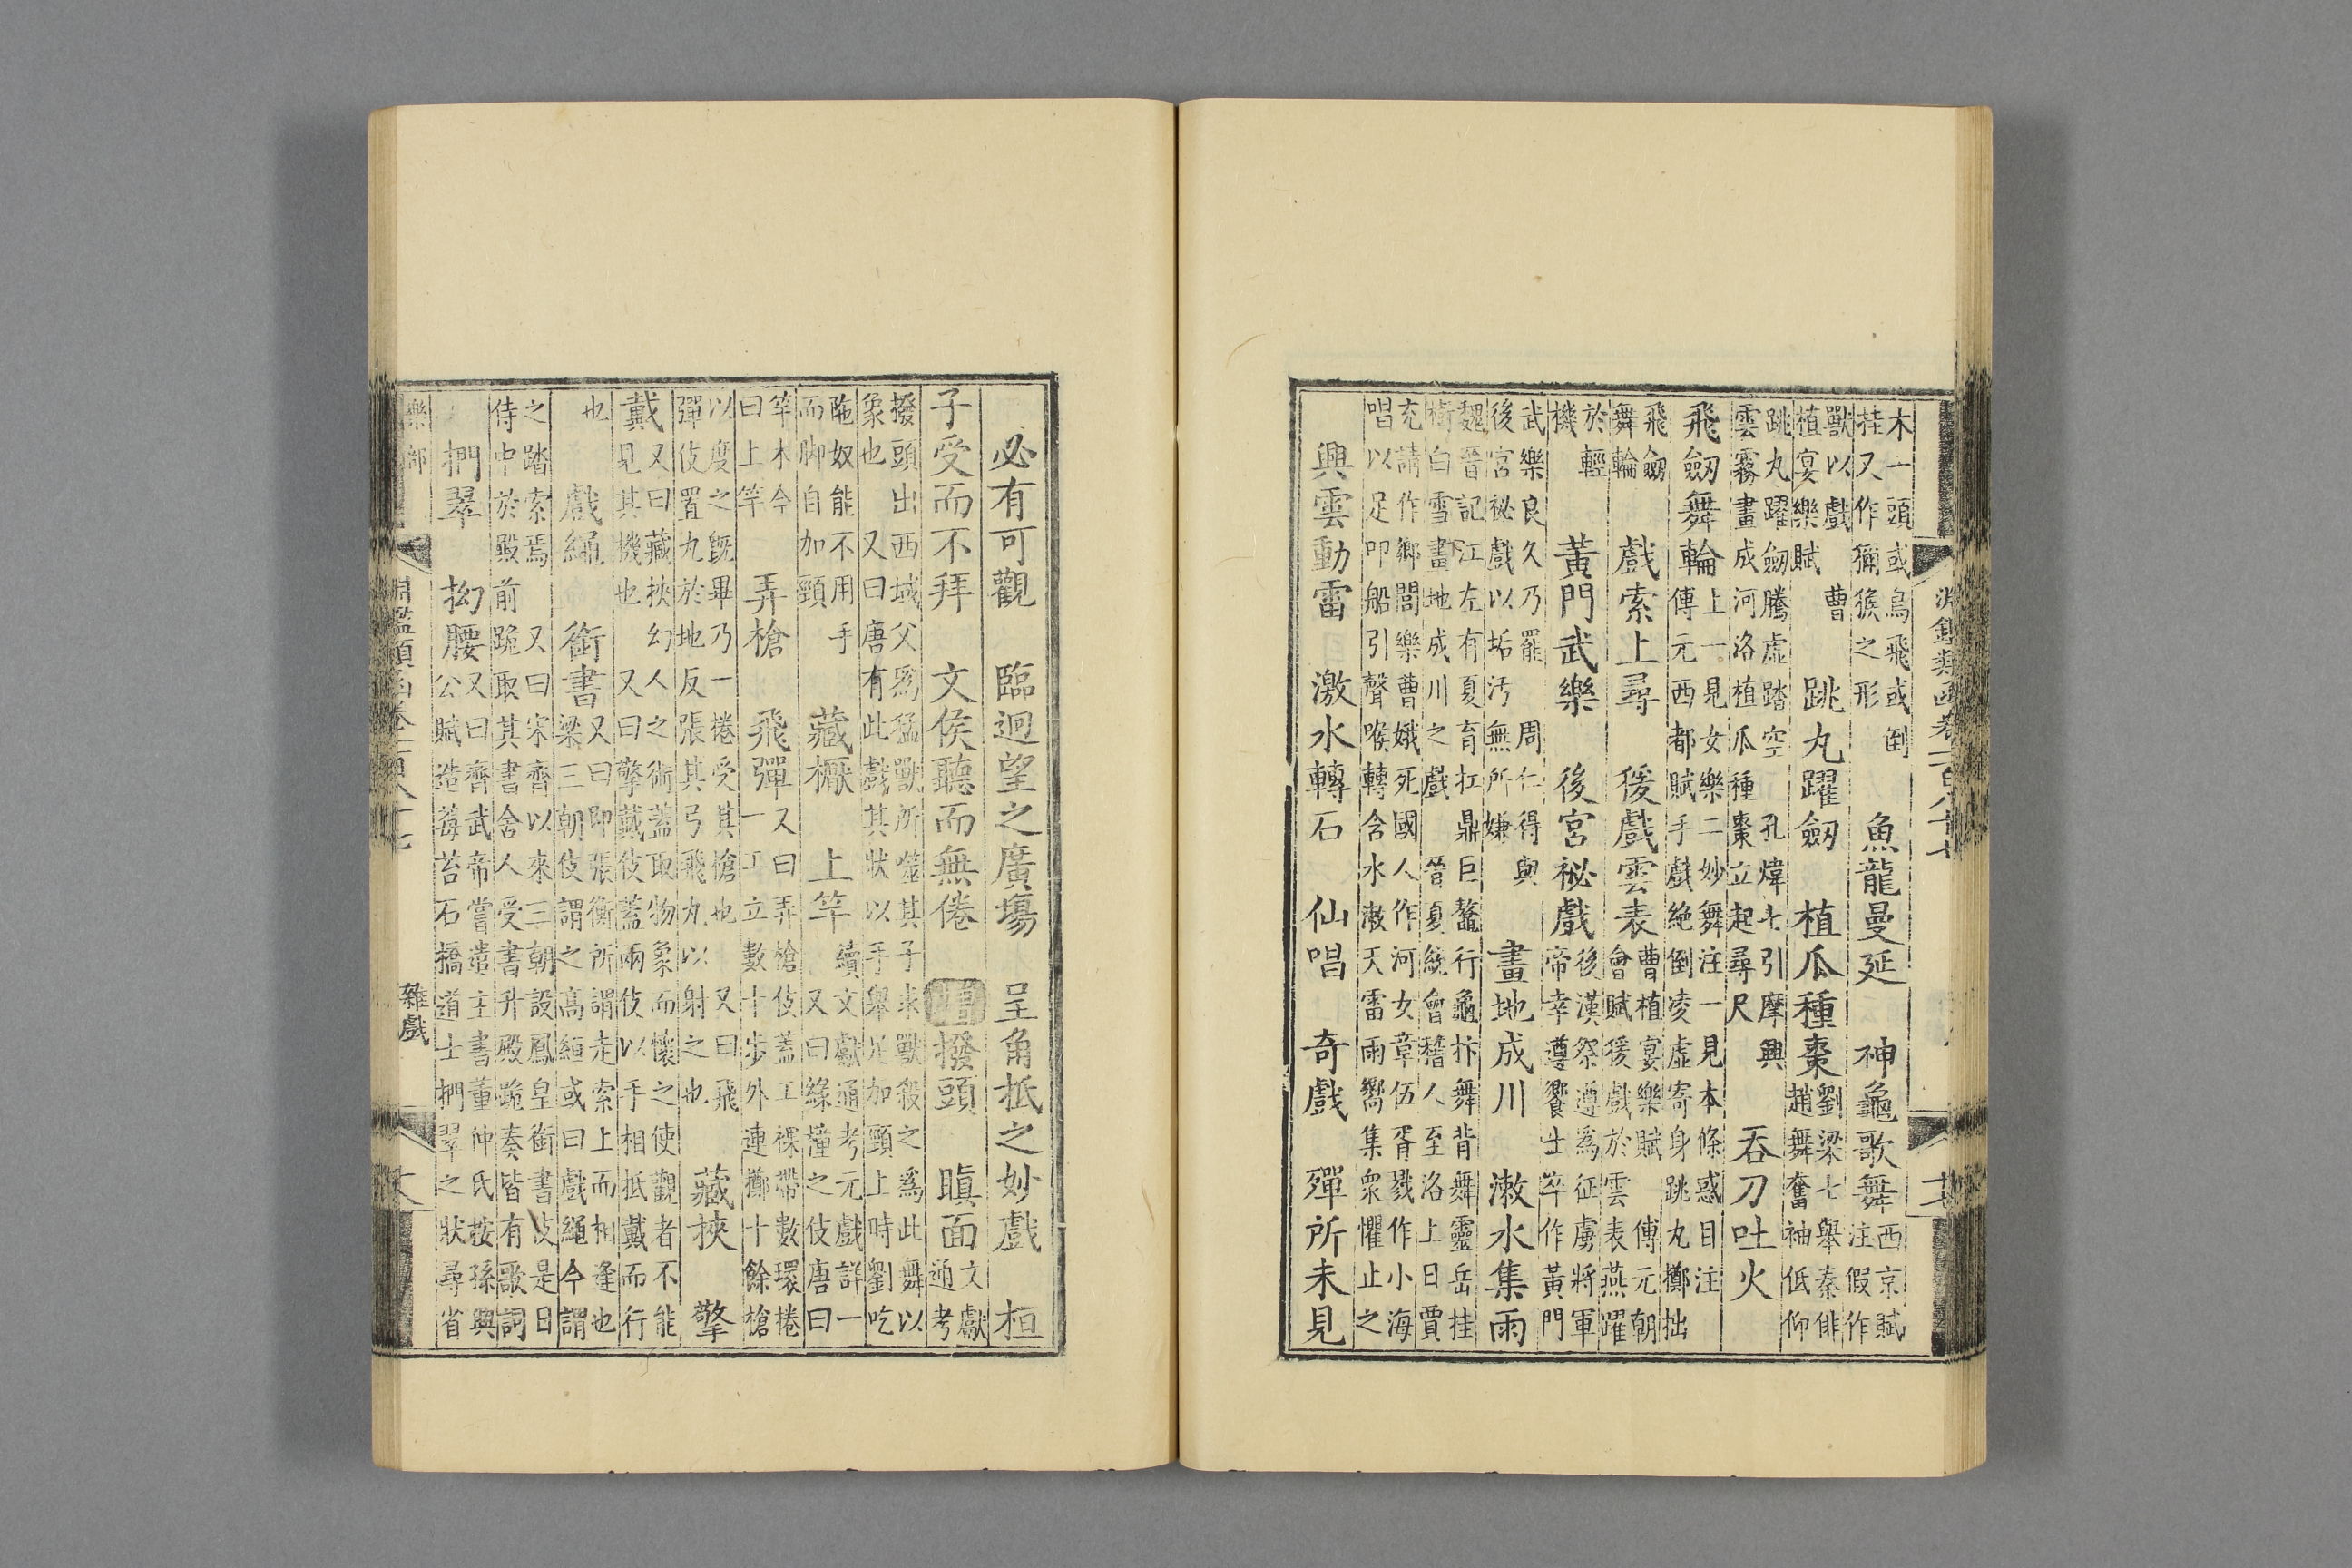 淵鑑類函卷一百八十七
木一頭或鳥飛或倒
桂又作獼猴之形
魚龍曼延 神龜歌舞
西京賦
注假作
獸以戲 曹
植宴樂賦
跳丸躍劒 植瓜種棗
劉梁七舉秦俳
趙舞奮袖低仰
跳丸躍劒騰虛踏空 孔煒七引摩興
雲霧畫成河洛植瓜種棗立起尋尺
吞刀吐火
飛劒舞輪
上一見女樂二妙舞注一見本條惑目注
傳元西都賦手戲絶倒凌虛寄身跳丸擲拙
飛劒
舞輪
戲索上尋 後戲雲表
曹植宴樂賦 傅元朝
會賦後戲於雲表燕躍
於輕
機
黃門武樂 後宮祕戲
後漢祭遵爲征虜將軍
帝幸遵饗士卒作黃門
武樂良久乃罷 周仁得與
後宮祕戲以垢汚無所嫌
畫地成川 潄水集雨
魏晉記江左有夏育扛鼎巨鼇行龜抃舞背舞靈岳桂
樹白雪畫地成川之戲 晉夏統會稽人至洛上日賈
充請作鄉閭樂曹娥死國人作河女章伍胥戮作小海
唱以足叩船引聲喉轉含水潄天雷雨嚮集衆懼止之
興雲動雷 激水轉石 仙唱 奇戲 殫所未見
必有可觀 臨迥望之廣塲 呈角抵之妙戲 桓
子受而不拜 文侯聽而無倦
撥頭 瞋面
文獻
通考
撥頭出西域父爲猛獸所噬其子求獸殺之爲此舞以
象也 又曰唐有此戲其狀以手舉足加頸上時劉吃
陁奴能不用手
而脚自加頸
藏橛 上竿
續文獻通考元戲詳一
又曰緣橦之伎唐曰
竿木今
曰上竿
弄槍 飛彈
又曰弄槍伎蓋工裸帶數環捲
一工立數十步外連擲十餘槍
以度之旣畢乃一捲受其槍也 又曰飛
彈伎置丸於地反張其弓飛丸以射之也
藏挾 擎
戴
又曰藏挾幻人之術蓋取物象而懷之使觀者不能
見其機也 又曰擎戴伎蓋兩伎以手相抵戴而行
也
戲繩 銜書
又曰卽張衡所謂走索上而相逢也
梁三朝伎謂之高絙或曰戲繩今謂
之踏索焉 又曰宋齊以來三朝設鳳皇銜書伎是日
侍中於殿前跪取其書舍人受書升殿跪奏皆有歌詞
捫翠 拗腰
又曰齊武帝嘗遣主書董仲民按孫興
公賦造莓苔石橋道士捫翠之狀尋省
樂部
淵鑑類函卷一百八十七
雜戲